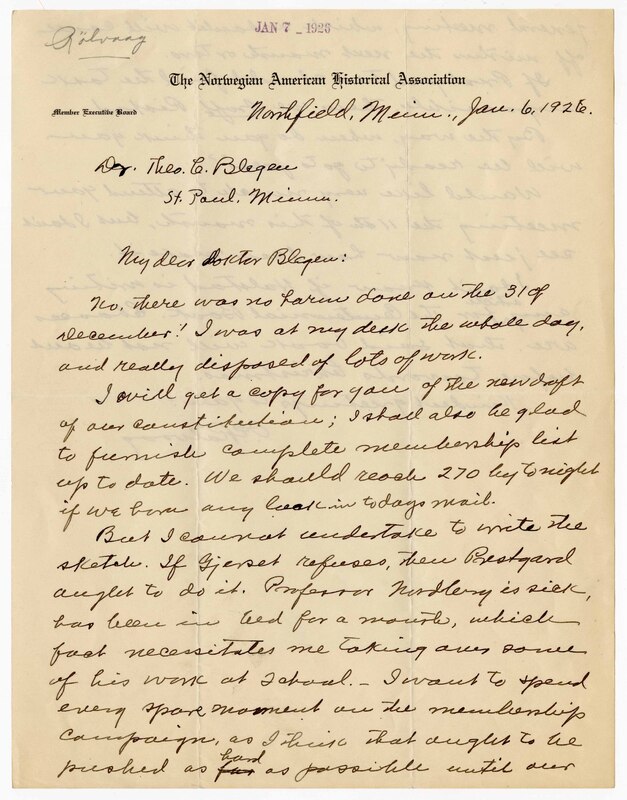 JAN 7 - 1926
Rölvaag
The Norwegian American Historical Association
Member Executive Board
Northfield, Minn., Jan. 6, 1926.
Dr. Theo. C. Blegen
St. Paul, Minnn.
My dear doktor Blegen:
No, there was no harm done on the 31 of
December! I was at my desk the whole day,
and really disposed of lots of work.
I will get a copy for you of the new draft
of our constitution; I shall also be glad
to furnish complete membership list
up to date. We should reach 270 by tonight
if we have any luck in todays mail.
But I cannot undertake to write the
sketch. If Gjerset refuses, then Prestgard
ought to do it. Professor Nordberg is sick,
has been in bed for a month, which
fact necessitates me taking over some
of his work at school. – I want to spend
every spare moment on the membership
campaign, as I think that ought to be
pushed as hard as possible until our